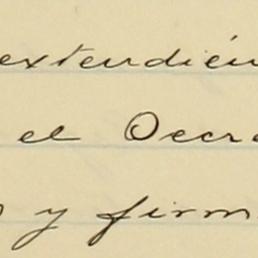 extendién
el Decr
y firm